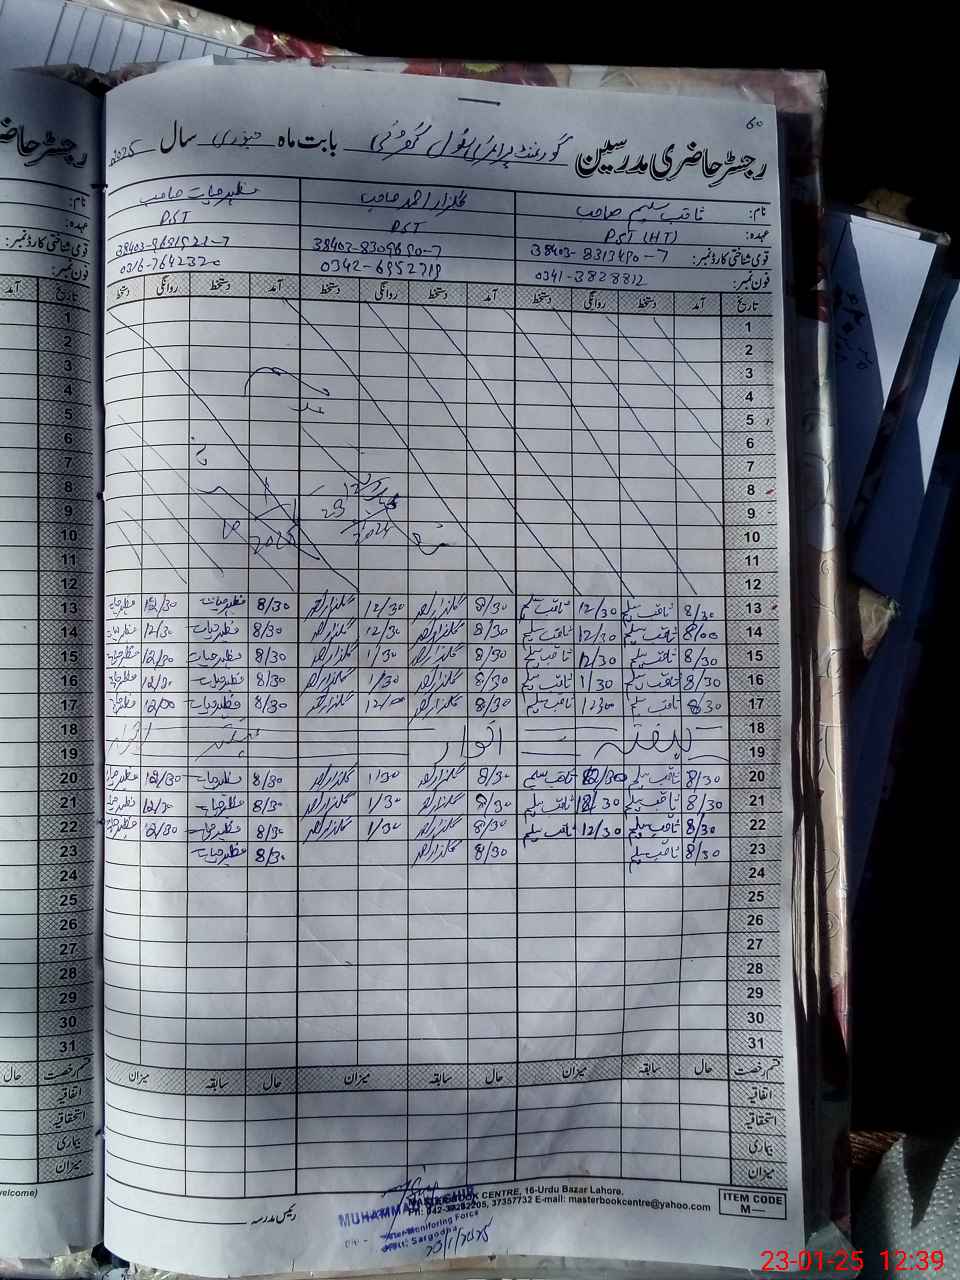 60
رجسٹر حاضری مدرسین گورنمنٹ پرائمری سکول بابت ماہ جنوری سال 2025
نام: ثاقب سلیم صاحب گلزار احمد صاحب مظہر حیات صاحب
عہدہ: PST (HT) PST PST
قومی شناختی کارڈ نمبر: 38403-8313490-7 38403-8309690-7
فون نمبر: 0341-3828812 0342-6952719 0316-7642320
تاریخ آمد دستخط روانگی دستخط آمد دستخط روانگی دستخط آمد دستخط روانگی دستخط
1
2
3
4
5
6
7
8
9
10
11
12
13 8/30 ثاقب سلیم 12/30 ثاقب سلیم 8/30 گلزار احمد 12/30 گلزار احمد 8/30 مظہر حیات 12/30 مظہر حیات
14 8/00 ثاقب سلیم 12/30 ثاقب سلیم 8/30 گلزار احمد 12/30 گلزار احمد 8/30 مظہر حیات 12/30 مظہر حیات
15 8/30 ثاقب سلیم 12/30 ثاقب سلیم 8/30 گلزار احمد 1/30 گلزار احمد 8/30 مظہر حیات 12/30 مظہر حیات
16 8/30 ثاقب سلیم 1/30 ثاقب سلیم 8/30 گلزار احمد 1/30 گلزار احمد 8/30 مظہر حیات مظہر حیات
17 8/30 ثاقب سلیم ثاقب سلیم 8/30 گلزار احمد 12/00 گلزار احمد 8/30 مظہر حیات 12/00 مظہر حیات
18
ہفتہ اتوار
19
20 8/30 ثاقب سلیم 12/30 ثاقب سلیم 8/30 گلزار احمد 1/30 گلزار احمد 8/30 مظہر حیات 12/30 مظہر حیات
21 8/30 ثاقب سلیم 12/30 ثاقب سلیم 8/30 گلزار احمد 1/30 گلزار احمد 8/30 مظہر حیات 12/30 مظہر حیات
22 8/30 ثاقب سلیم 12/30 ثاقب سلیم 8/30 گلزار احمد 1/30 گلزار احمد 8/30 مظہر حیات 12/30 مظہر حیات
23 8/30 ثاقب سلیم 8/30 گلزار احمد 8/30 مظہر حیات
24
25
26
27
28
29
30
31
قسم رخصت حال سابقہ میزان حال سابقہ میزان حال سابقہ میزان
اتفاقیہ
استحقاقیہ
بیماری
میزان
رئیس مدرسہ
MASTER BOOK CENTRE, 16-Urdu Bazar Lahore.
37357732 E-mail: masterbookcentre@yahoo.com
ITEM CODE
M—
MUHAMMAD
Monitoring Force
Sargodha
23/1/2025
23-01-25 12:39